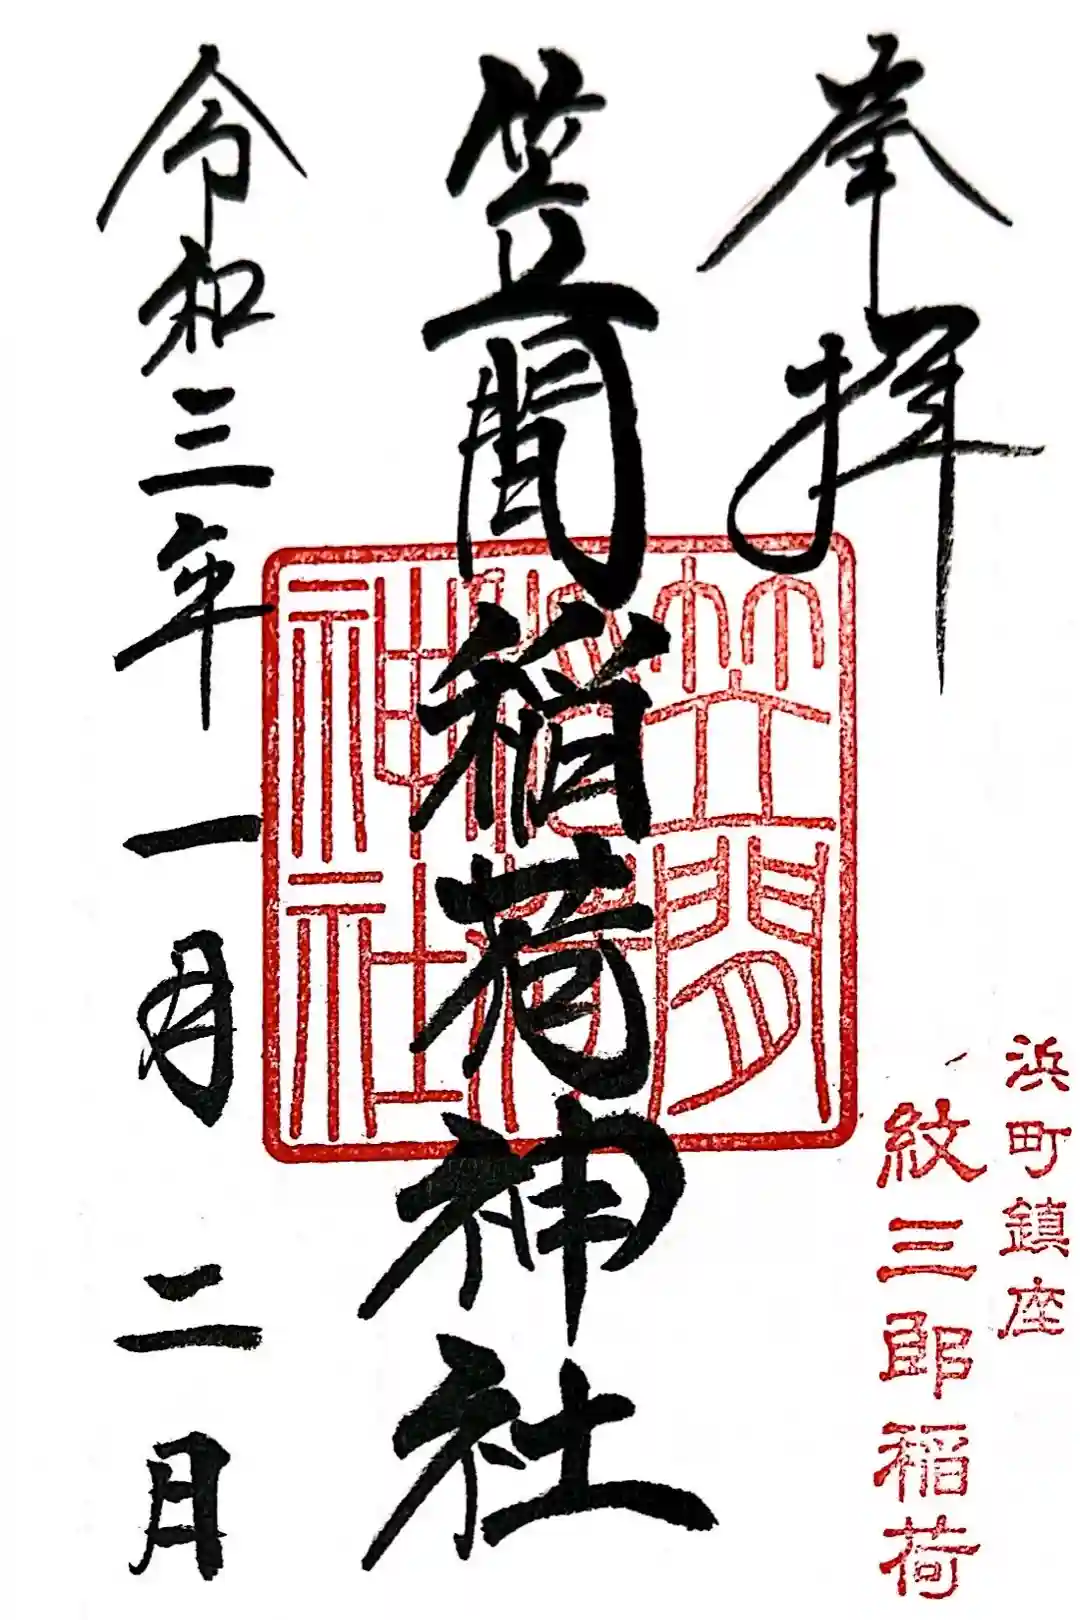 奉拝
浜町鎮座
紋三郎稲荷
笠間稲荷神社
笠間
稲荷
神社
令和三年一月二日